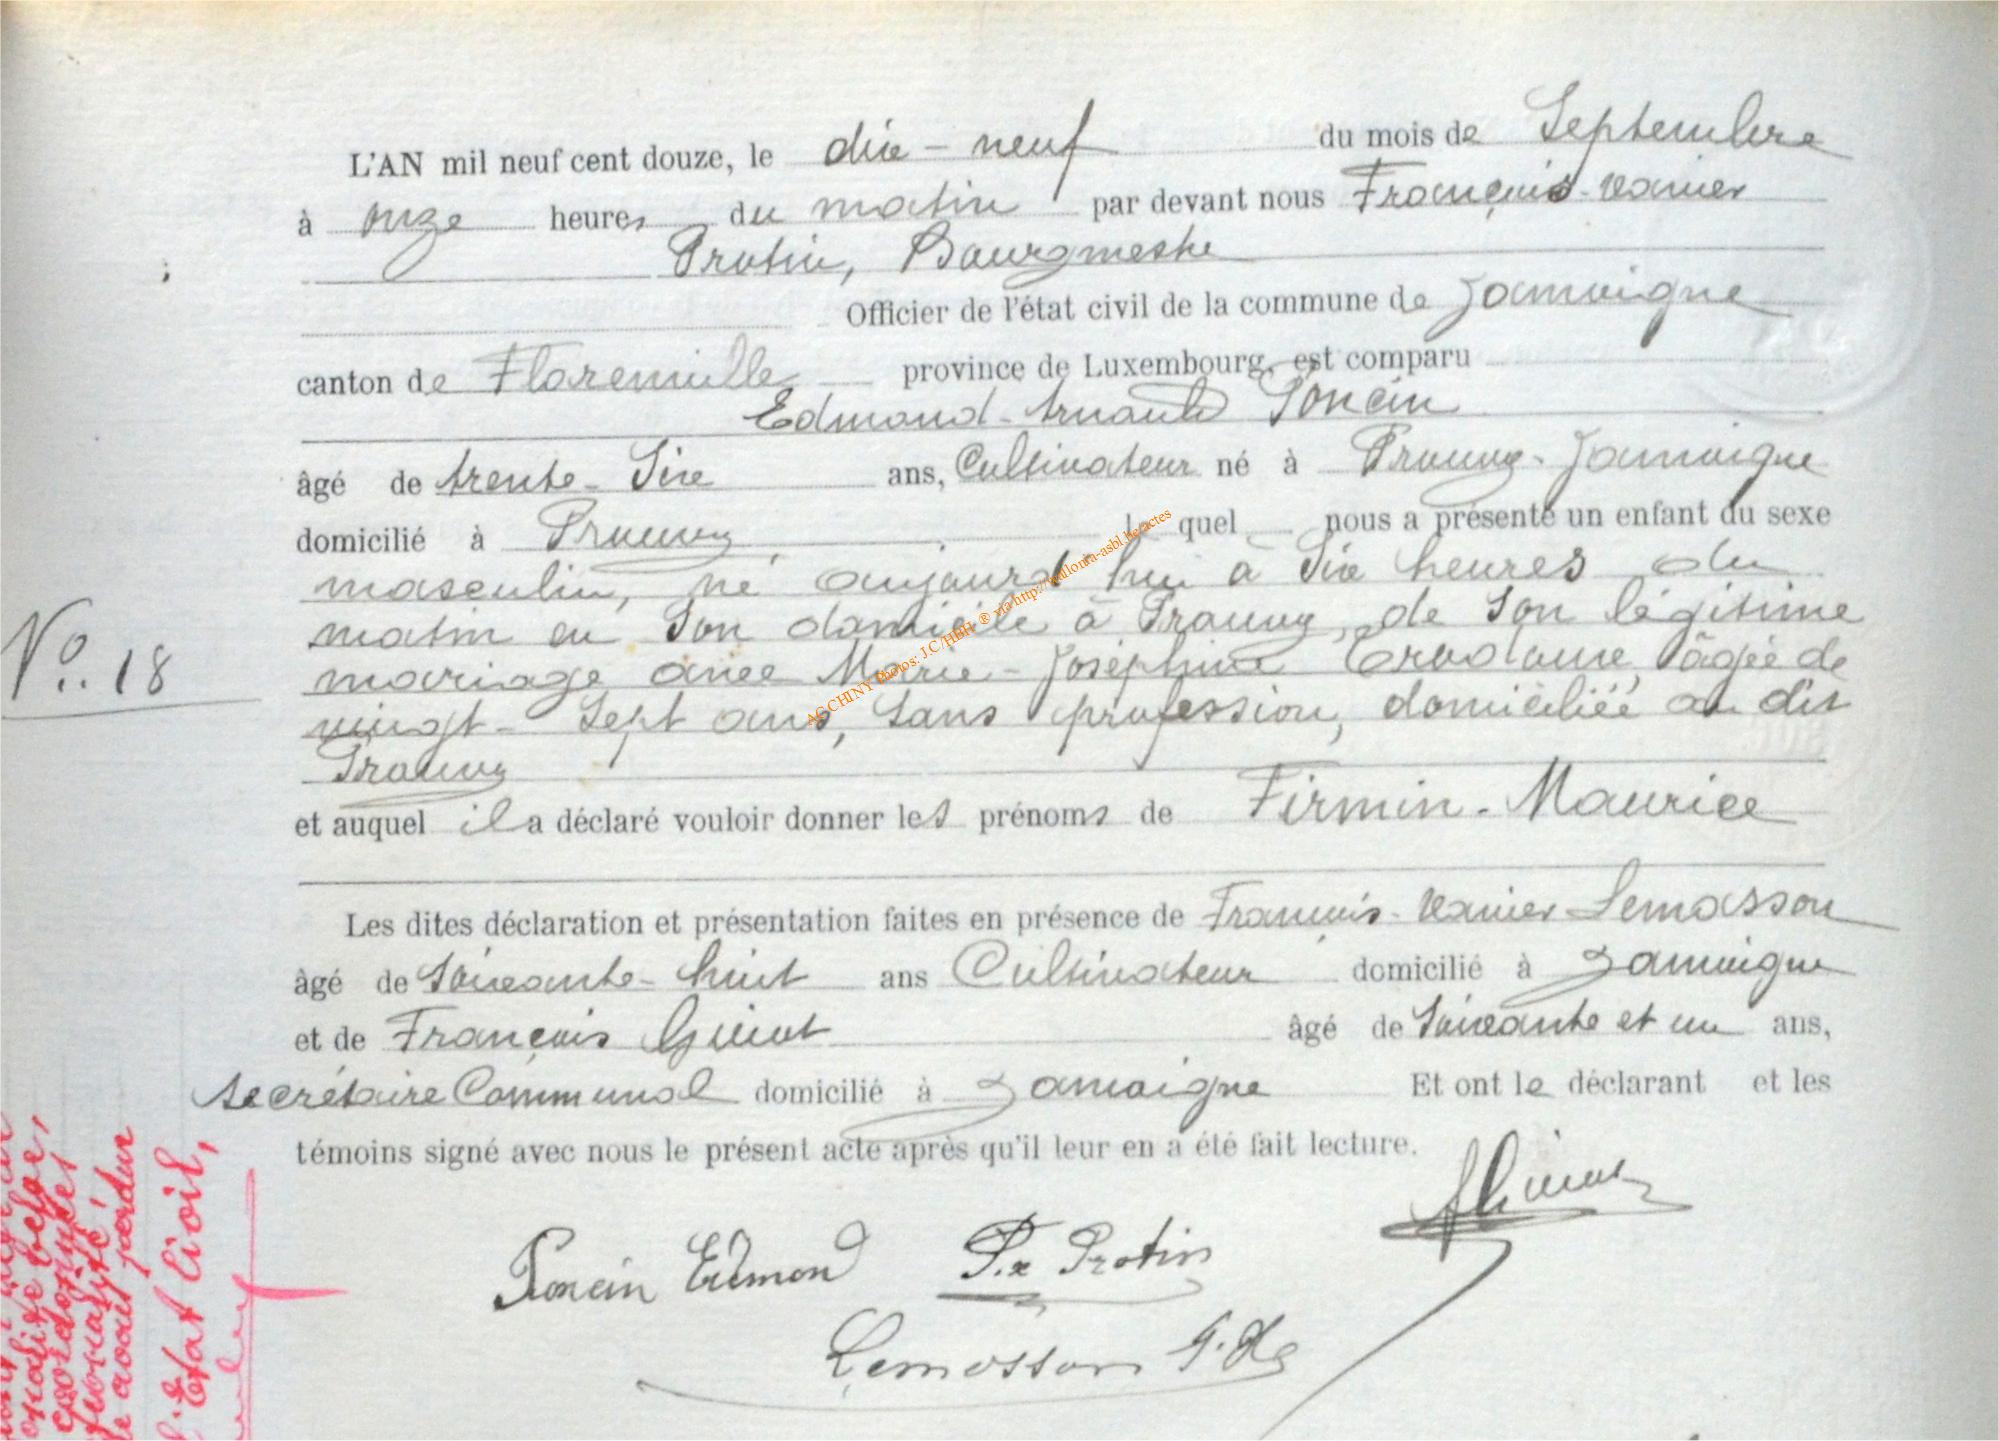 L'AN mil neuf cent douze, le dix-neuf du mois de Septembre
à onze heures du matin par devant nous François-Xavier
Protin, Bourgmestre
Officier de l'état civil de la commune de Jamoigne
canton de Florenville province de Luxembourg, est comparu
Edmond-Arnould Poncin
âgé de trente-Six ans, Cultivateur né à Prouvy-Jamoigne
domicilié à Prouvy, lequel nous a présenté un enfant du sexe
masculin, né aujourd'hui à Six heures du
matin en Son domicile à Prouvy, de Son légitime
mariage avec Marie-Joséphine âgée de
vingt-Sept ans, Sans profession, domiciliée au dit
Prouvy
et auquel il a déclaré vouloir donner les prénoms de Firmin-Maurice
No. 18
Les dites déclaration et présentation faites en présence de François-Xavier Lemasson
âgé de Soixante-huit ans Cultivateur domicilié à Jamoigne
et de François Guiot âgé de Soixante et un ans,
Secrétaire Communal domicilié à Jamoigne Et ont le déclarant et les
témoins signé avec nous le présent acte après qu'il leur en a été fait lecture.
Guiot
Poncin Edmond Protin
Lemasson
AGCHINY Photos: J.C/HBH ® via http://wallonia-asbl.be/actes
avait perdu
l'Etat Civil,